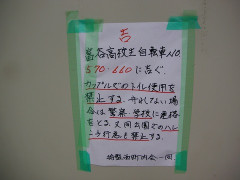 告
高校生自転車NO.
570・660に告ぐ.
カップルでのトイレ使用を
禁止する. 守れない場
合は警察・学校に連絡
をとる. 又同公園でのハレ
ンチ行為も禁止する.
町内会一同